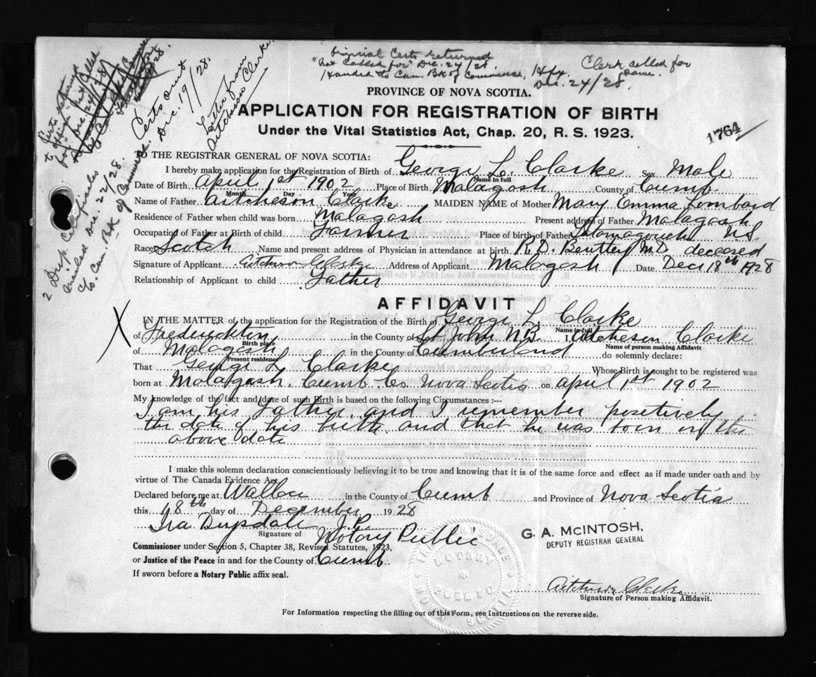 Original Certs returned
"Not Called for" Dec. 24/28.
Handed to Can. Bk of Commerce, Hfx.
Clerk called for
same.
Dec. 24/28.
Certs out
Dec. 19/28.
Letter from
Aitcheson Clarke
2 Dup Certificates
mailed Dec. 22/28.
c/o Can. Bk of Commerce
PROVINCE OF NOVA SCOTIA.
APPLICATION FOR REGISTRATION OF BIRTH
Under the Vital Statistics Act, Chap. 20, R. S. 1923.
1764
TO THE REGISTRAR GENERAL OF NOVA SCOTIA:
I hereby make application for the Registration of Birth of George L. Clarke Sex Male
Name in full
Date of Birth April 1st 1902 Place of Birth Malagash County of Cumb.
Month Day Year
Name of Father Aitcheson Clarke MAIDEN NAME of Mother Mary Emma Lombard
Residence of Father when child was born Malagash Present address of Father Malagash
Occupation of Father at Birth of child Farmer Place of birth of Father Tatamagouche N.S
Race Scotch Name and present address of Physician in attendance at birth R.D. Bentley M.D deceased
Signature of Applicant Aitcheson Clarke Address of Applicant Malagash Date Dec 18th 1928
Relationship of Applicant to child Father
AFFIDAVIT
IN THE MATTER of the application for the Registration of the Birth of George L. Clarke
Name in full
X of Frederickton in the County of St John N.B. I, Aitcheson Clarke
Birth place Name of person making Affidavit
of Malagash in the County of Cumberland do solemnly declare:
Present residence
That George L. Clarke Whose Birth is sought to be registered was
born at Malagash Cumb. Co Nova Scotia on April 1st 1902
My knowledge of the fact and date of such Birth is based on the following Circumstances :—
I am his Father and I remember positively
the date of his birth and that he was born on the
above date
I make this solemn declaration conscientiously believing it to be true and knowing that it is of the same force and effect as if made under oath and by
virtue of The Canada Evidence Act.
Declared before me at Wallace in the County of Cumb and Province of Nova Scotia
this 18th day of December 1928
Ira Dupdale J.P.
Signature of Notary Public
Commissioner under Section 5, Chapter 38, Revised Statutes, 1923,
or Justice of the Peace in and for the County of Cumb.
If sworn before a Notary Public affix seal.
G. A. McINTOSH,
DEPUTY REGISTRAR GENERAL
NOTARY
PUBLIC
Aitcheson Clarke
Signature of Person making Affidavit.
For Information respecting the filling out of this Form, see Instructions on the reverse side.